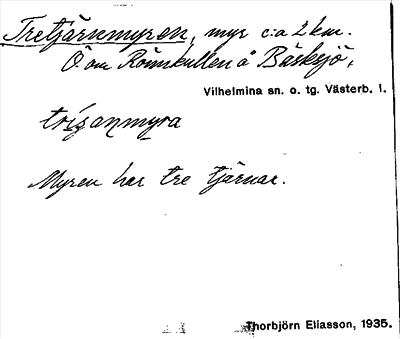 Tretjärnmyren, myr c:a 2 km.
Ö om Rönnkullen å Bäsksjö,
Vilhelmina sn. o. tg. Västerb. l.
Myren har tre tjärnar.
Thorbjörn Eliasson, 1935.